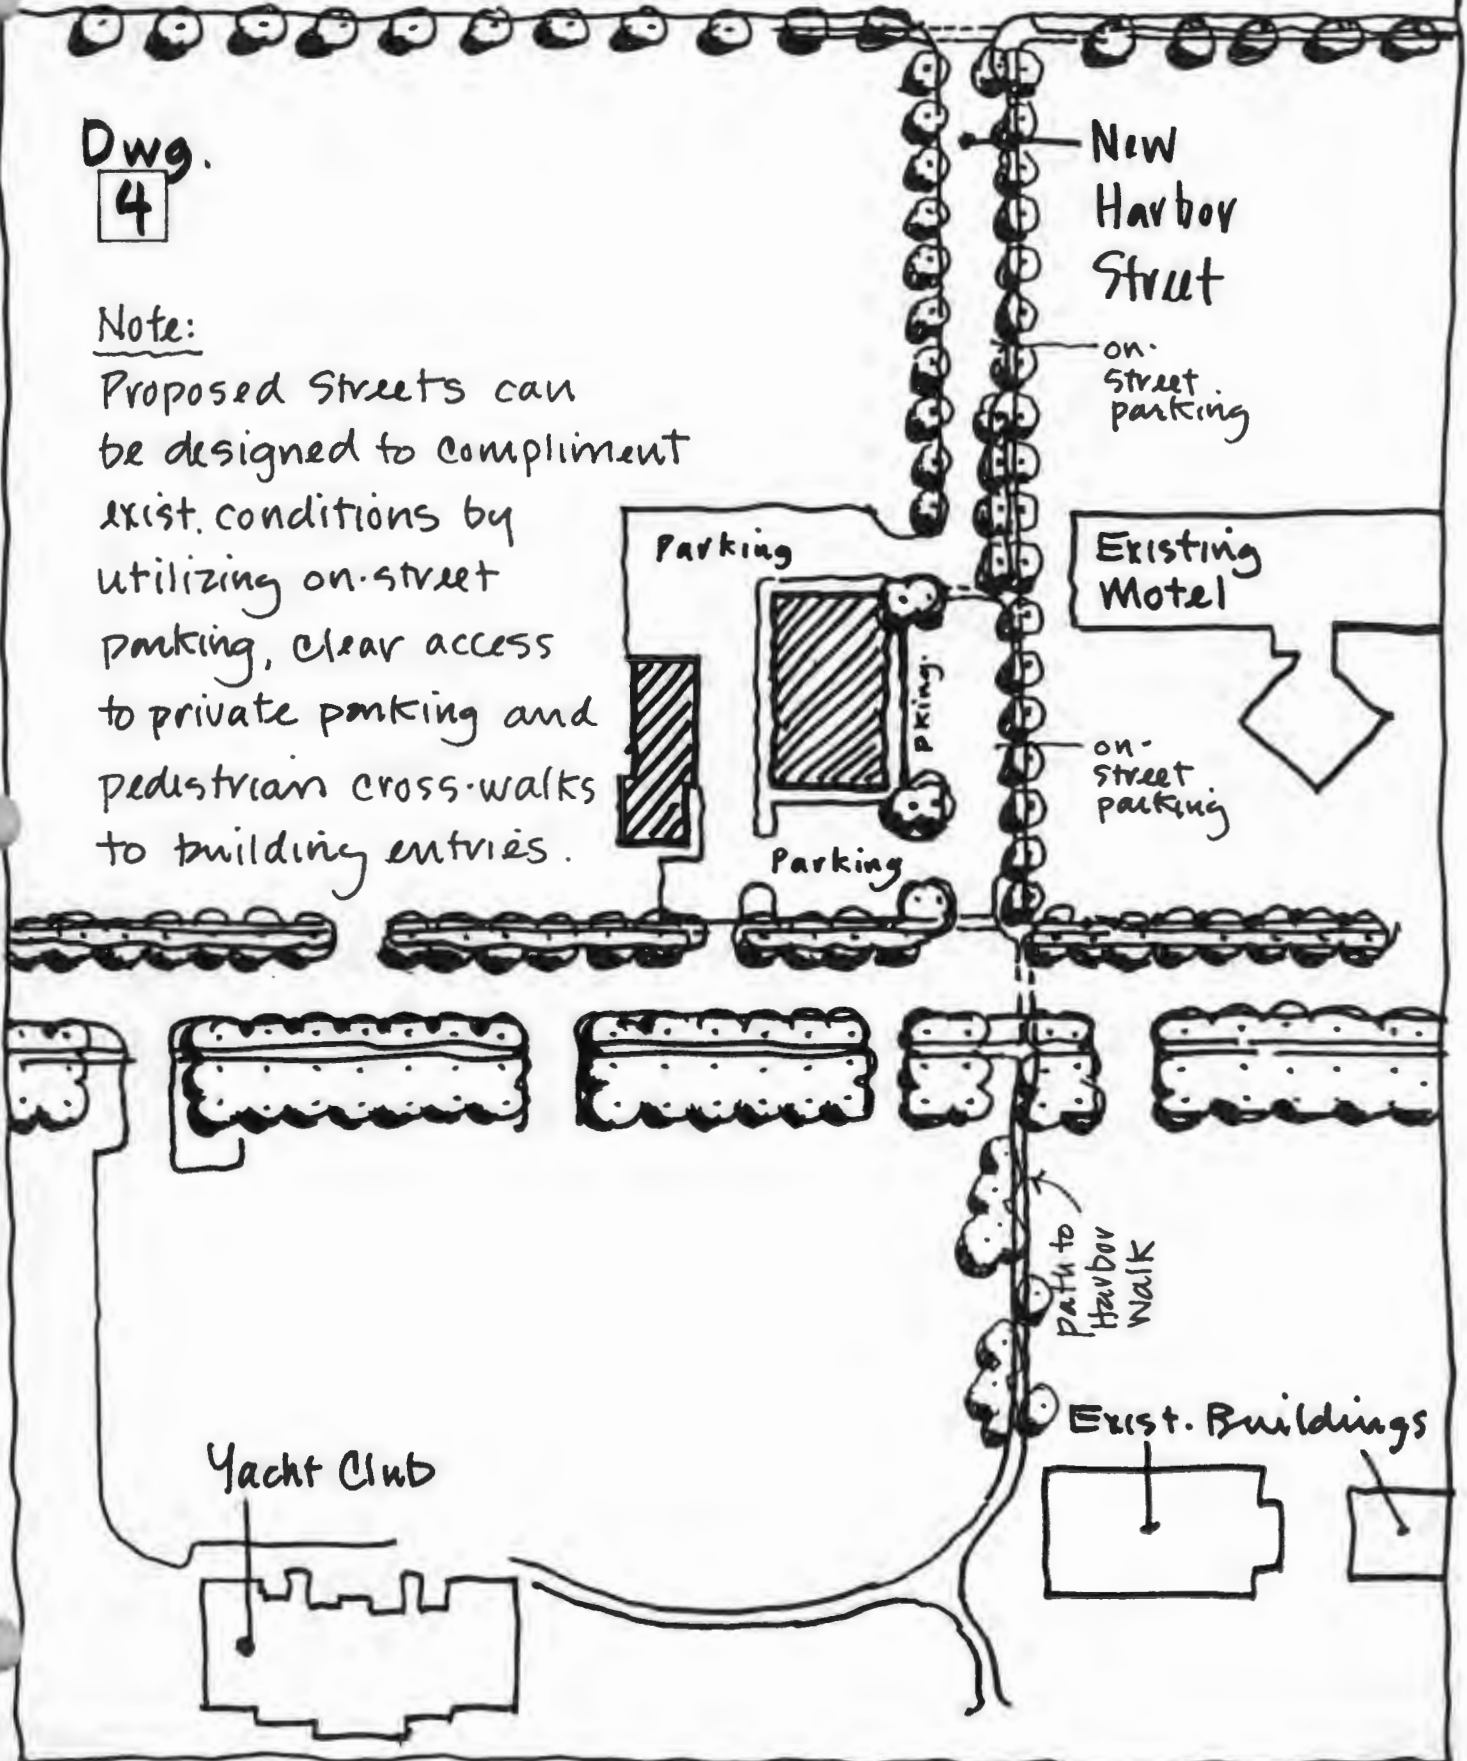 Dwg.
4
Note:
Proposed Streets can
be designed to compliment
exist. conditions by
utilizing on-street
parking, clear access
to private parking and
pedestrian cross-walks
to building entries.
New
Harbor
Street
on-
street
parking
Parking
Existing
Motel
pking.
on-
street
parking
Parking
path to
Harbor
Walk
Exist. Buildings
Yacht Club